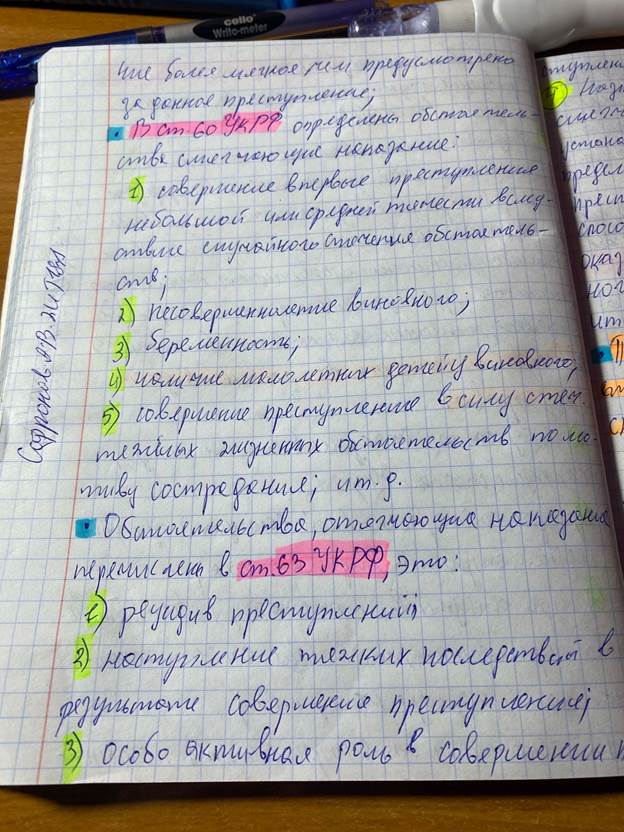 cello
Write-meter
ние более мягкое, чем предусмотрено
за данное преступление;
В ст. 60 УК РФ определены обстоятель-
ства смягчающие наказание:
1) совершение впервые преступления
небольшой или средней тяжести вслед-
ствие случайного стечения обстоятель-
ств;
2) несовершеннолетие виновного;
3) беременность;
4) наличие малолетних детей у виновного;
5) совершение преступления в силу стеч.
тяжёлых жизненных обстоятельств по мо-
тиву сострадания; и т.д.
Обстоятельства, отягчающие наказание
перечислены в ст. 63 УК РФ, это:
1) рецидив преступлений;
2) наступление тяжких последствий в
результате совершения преступления;
3) особо активная роль в совершении п